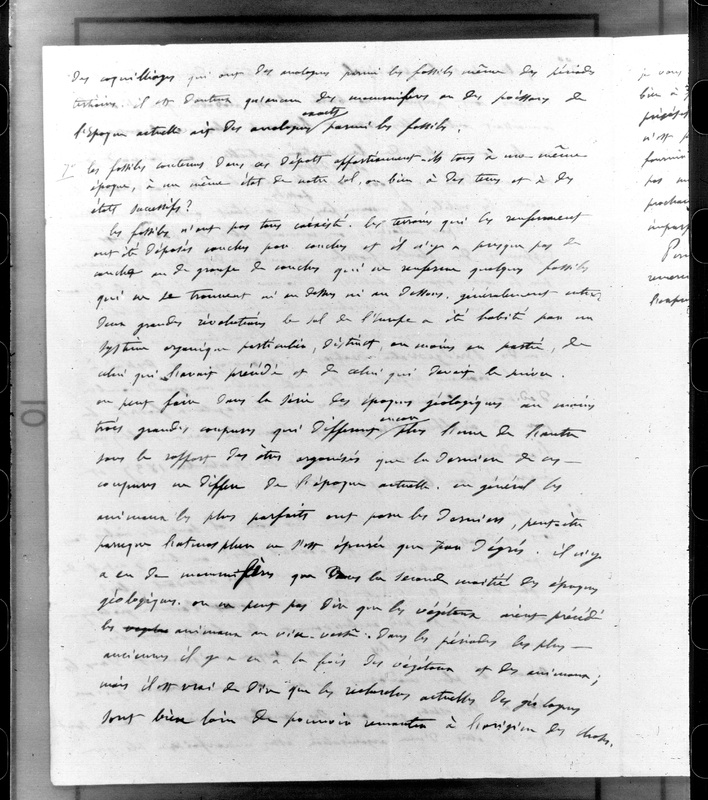 des coquilliages qui ont des analogues parmi les fossiles même des périodes
tertiaires. il est douteux qu'aucun des mammifères ou des poissons de
l'époque actuelle ait des analogues exacts parmi les fossiles.
7° les fossiles contenus dans ces dépôts appartiennent-ils tous à une même
époque, à un même état de notre sol, ou bien à des tems et à des
états successifs?
les fossiles n'ont pas tous coexisté. les terrains qui les renferment
ont été déposés couches par couches et il n'y a presque pas de
couche ou de groupe de couches qui ne renferme quelques fossiles
qui ne se trouvent ni au dessus ni au dessous. généralement entre
deux grandes révolutions le sol de l'Europe a été habité par un
système organique particulier, distinct, au moins en partie, de
celui qui l'avait précédé et de celui qui devait le suivre.
on peut faire dans la série des époques géologiques au moins
trois grandes coupures qui diffèrent encore plus l'une de l'autre
sous le rapport des êtres organisés que la dernière de ces
coupures ne diffère de l'époque actuelle. en général les
animaux les plus parfaits ont paru les derniers, peut-être
parceque l'atmosphère ne s'est épurée que par dégrés. il n'y
a eu de mammifères que dans la seconde moitié des époques
géologiques. on ne peut pas dire que les végétaux aient précédé
les animaux ou vice-versâ. dans les périodes les plus
anciennes il y a eu à la fois des végétaux et des animaux;
mais il est vrai de dire que les recherches actuelles des géologues
sont bien loin de pouvoir remonter à l'origine des choses.
je vous
bien à
n'est
pas
10